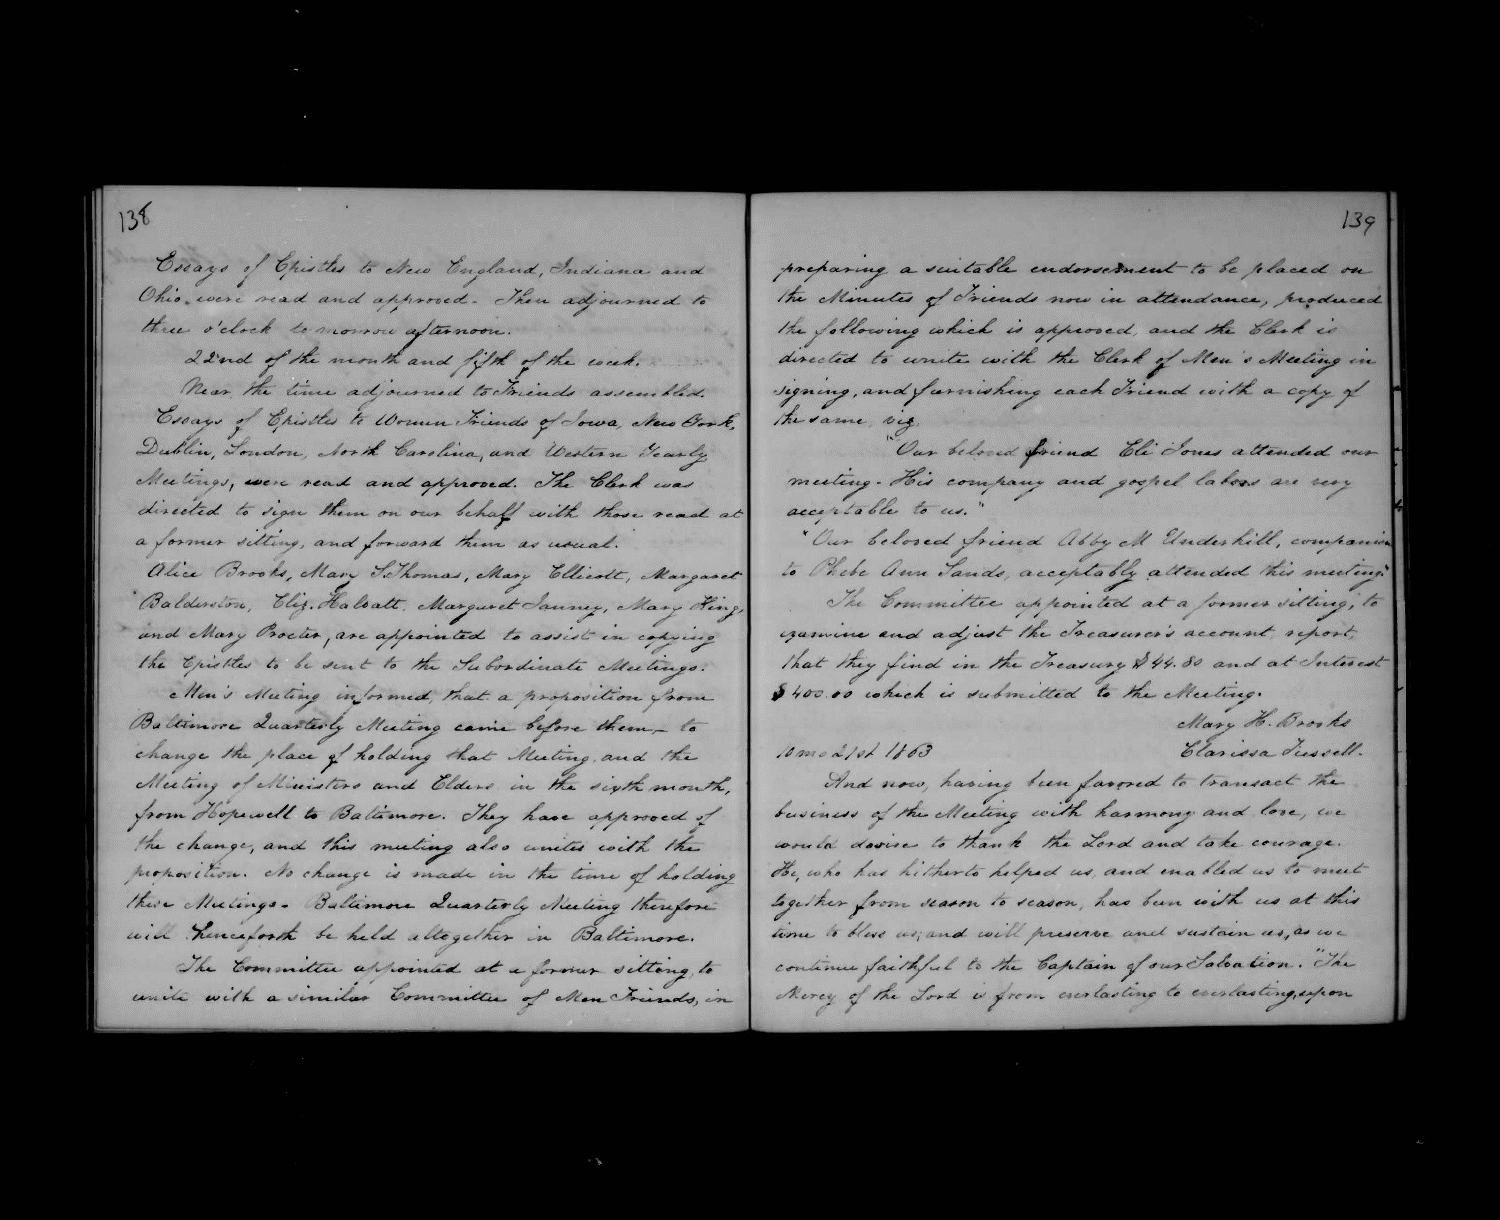 138
Essays of Epistles to New England, Indiana and
Ohio, were read and approved. Then adjourned to
three o'clock to morrow afternoon.
22nd of the month and fifth of the week.
Near the time adjourned to Friends assembled.
Essays of Epistles to Women Friends of Iowa, New York,
Dublin, London, North Carolina, and Western Yearly
Meetings, were read and approved. The Clerk was
directed to sign them on our behalf with those read at
a former sitting, and forward them as usual.
Alice Brooks, Mary S. Thomas, Mary Ellicott, Margaret
Balderston, Eliz. Margaret Janney, Mary King,
and Mary Procter, are appointed to assist in copying
the Epistles to be sent to the Subordinate Meetings.
Men's Meeting informed, that a proposition from
Baltimore Quarterly Meeting came before them, to
change the place of holding that Meeting, and the
Meeting of Ministers and Elders in the sixth month,
from Hopewell to Baltimore. They have approved of
the change, and this meeting also unites with the
proposition. No change is made in the time of holding
these Meetings. Baltimore Quarterly Meeting therefore
will henceforth be held altogether in Baltimore.
The Committee appointed at a former sitting, to
unite with a similar Committee of Men Friends, in
139
preparing a suitable endorsement to be placed on
the Minutes of Friends now in attendance, produced
the following which is approved, and the Clerk is
directed to unite with the Clerk of Men's Meeting in
signing, and furnishing each Friend with a copy of
the same, viz
"Our beloved friend Eli Jones attended our
meeting. His company and gospel labors are very
acceptable to us."
"Our beloved friend Abby M Underhill, companion
to Phebe Ann Sands, acceptably attended this meeting."
The Committee appointed at a former sitting, to
examine and adjust the Treasurer's account, report,
that they find in the Treasury $44.80 and at Interest
$400.00 which is submitted to the Meeting.
Mary H. Brooks
10 mo 21st 1863 Clarissa Tussell.
And now, having been favored to transact the
business of the Meeting with harmony and love, we
would desire to thank the Lord and take courage.
He, who has hitherto helped us, and enabled us to meet
together from season to season, has been with us at this
time to bless us; and will preserve and sustain us, as we
continue faithful to the Captain of our Salvation. "The
Mercy of the Lord is from everlasting to everlasting, upon